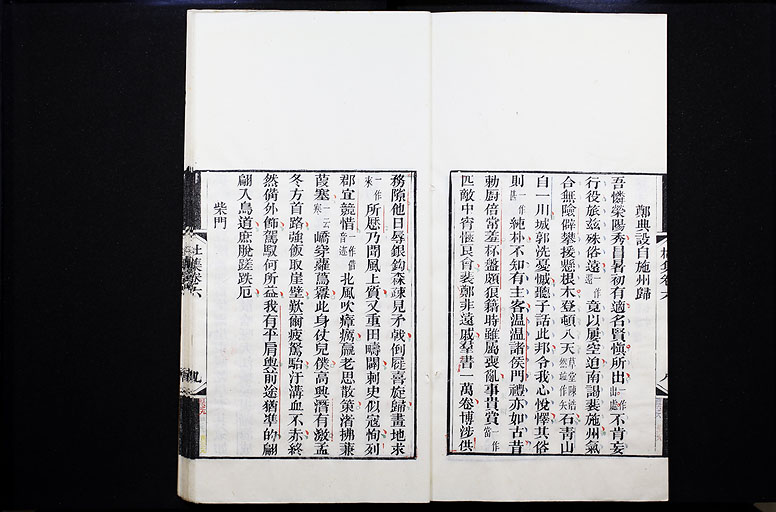 鄭典設自施州歸
吾憐滎陽秀冒暑初有適名賢慎所出一作處不肯妄
行役旅茲殊俗遠一作竟以屢空迫南謁裴施州氣
合無險僻攀援懸根木登頓入天石青山
自一川城郭洗憂慽聽子話此邦令我心悅懌其俗
則一作純朴不知有主客温温諸侯門禮亦如古昔
勅廚倍常羞杯盤頗狼藉時雖屬喪亂事貴賞一作當
匹敵中宵愜良會裴鄭非遠戚羣書一萬卷博涉供
務隙他日辱銀鈎森疎見矛戟倒屣喜旋歸畫地求
一作來所歷乃聞風土質又重田疇闢刺史似寇恂列
郡宜競惜一作借音迹北風吹瘴癘羸老思散策渚拂蒹
葭塞一云寒嶠穿蘿蔦羃此身仗兒僕高興潛有激孟
冬方首路強飯取崖壁歎爾疲駑駘汗溝血不赤終
然備外飾駕馭何所益我有平肩輿前途猶準的翩
翩入鳥道庶脫蹉跌厄
柴門
杜集卷六
九
杜集卷六
八